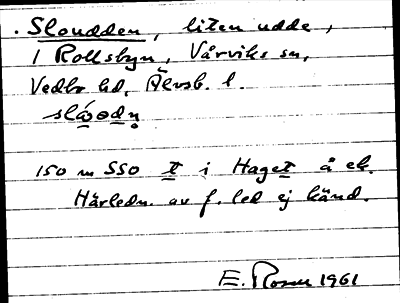 . Sloudden, liten udde,
1 Rollsbyn, Vårviks sn,
Vedbo hd, Älvsb. l.
slåodn
150 m SSO t i Haget å ek.
Härledn. av f. led ej känd.
E. Rosen 1961